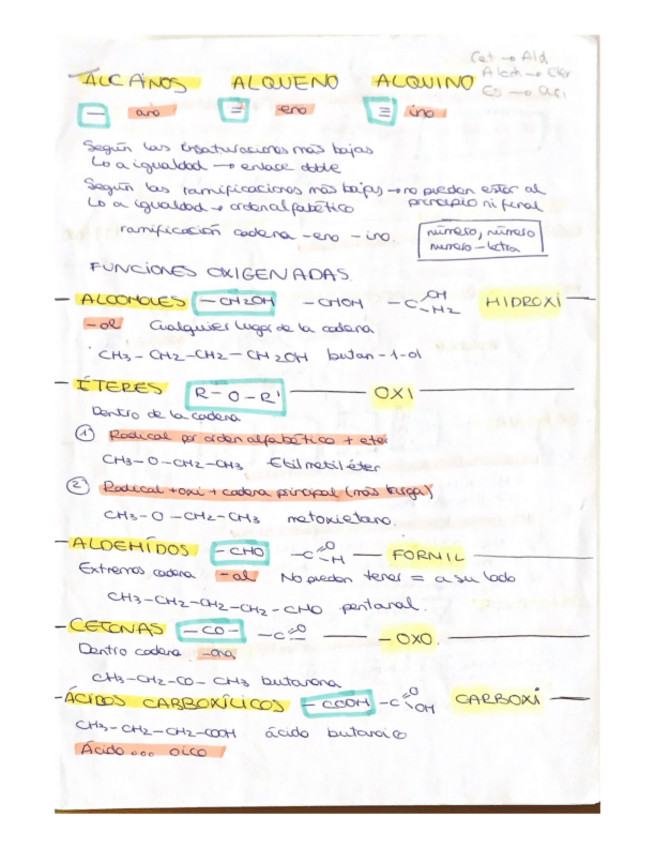 Cet → Ald
Alcoh → Eter
Es → Aci
ALCANOS ALQUENO ALQUINO
— ano = eno ≡ ino
Según las insaturaciones más bajas
↳ a igualdad → enlace doble
Según las ramificaciones más bajas → no pueden estar al
↳ a igualdad → orden alfabético principio ni final
ramificación cadena -eno -ino.
número, número
número-letra
FUNCIONES OXIGENADAS.
— ALCOHOLES —CH2OH —CHOH —C OH H2 HIDROXI —
-ol Cualquier lugar de la cadena
CH3 - CH2 - CH2 - CH2OH butan-1-ol
— ÉTERES R-O-R' OXI
Dentro de la cadena
① Radical por orden alfabético + eter
CH3-O-CH2-CH3 Etilmetil éter
② Radical + oxi + cadena principal (más larga)
CH3-O-CH2-CH3 metoxietano.
— ALDEHÍDOS —CHO —C=O -H — FORMIL
Extremos cadena -al No pueden tener = a su lado
CH3-CH2-CH2-CH2-CHO pentanal.
— CETONAS —CO— —C=O — -OXO.
Dentro cadena -ona
CH3-CH2-CO-CH3 butanona
-ÁCIDOS CARBOXÍLICOS —COOH —C=O OH CARBOXI —
CH3-CH2-CH2-COOH ácido butanoico
Ácido ... oico